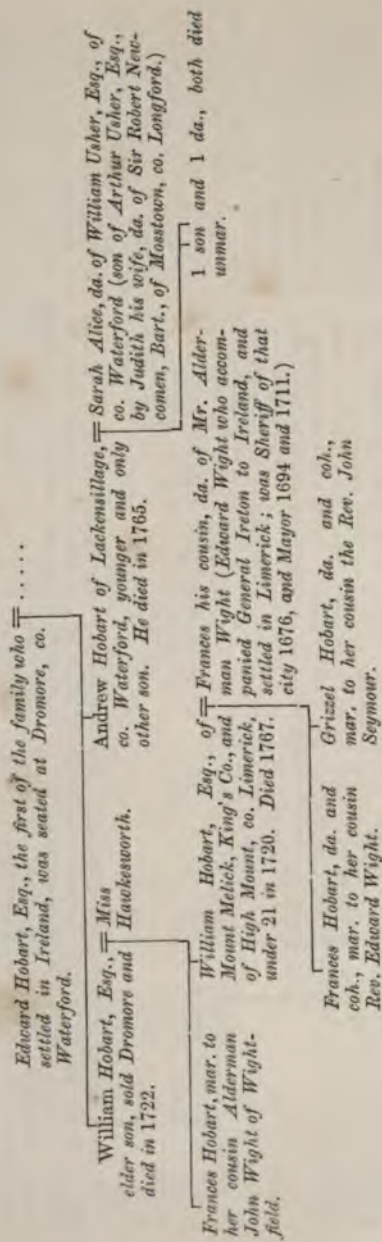 Edward Hobart, Esq., the first of the family who = . . . . . .
settled in Ireland, was seated at Dromore, co.
Waterford.
William Hobart, Esq., = Miss
elder son, sold Dromore and Hawkesworth.
died in 1722.
Andrew Hobart of Lackensillage, = Sarah Alice, da. of William Usher, Esq., of
co. Waterford, younger and only
other son. He died in 1765.
co. Waterford (son of Arthur Usher, Esq.,
by Judith his wife, da. of Sir Robert New-
comen, Bart., of Mosstown, co. Longford.)
Frances Hobart, mar. to
her cousin Alderman
John Wight of Wight-
field.
William Hobart, Esq., of = Frances his cousin, da. of Mr. Alder-
Mount Melick, King's Co., and
of High Mount, co. Limerick,
under 21 in 1720. Died 1767.
man Wight (Edward Wight who accom-
panied General Ireton to Ireland, and
settled in Limerick; was Sheriff of that
city 1676, and Mayor 1694 and 1711.)
1 son and 1 da., both died
unmar.
Frances Hobart, da. and
coh., mar. to her cousin
Rev. Edward Wight.
Grizzel Hobart, da. and coh.,
mar. to her cousin the Rev. John
Seymour.